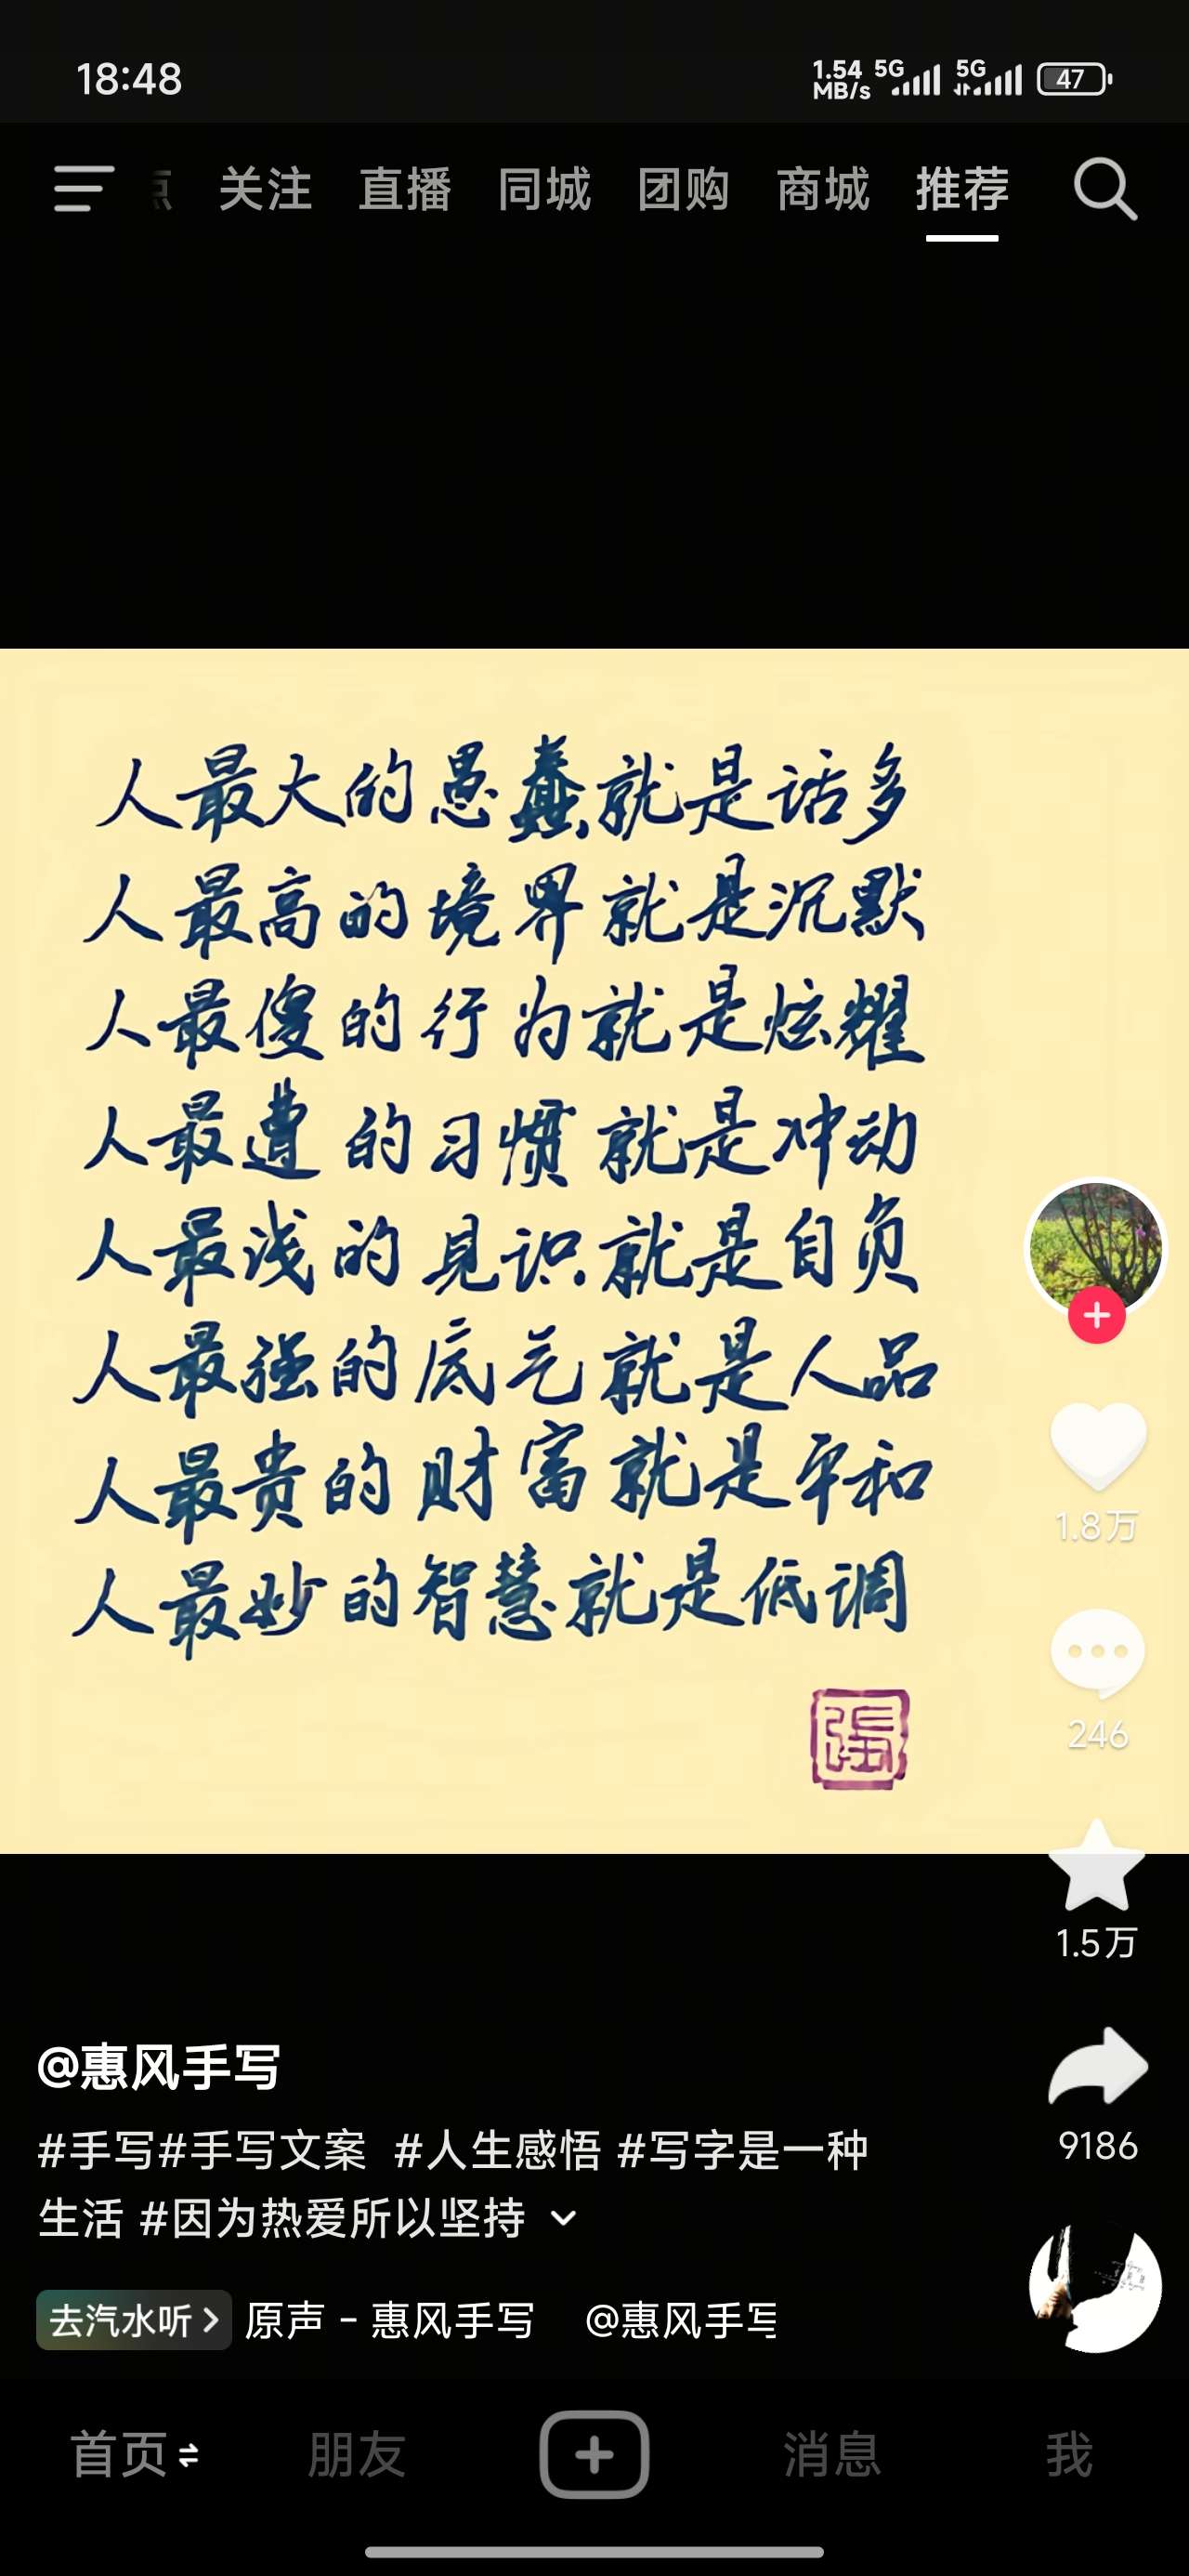 18:48
1.54 MB/s 5G 5G 47
关注 直播 同城 团购 商城 推荐
人最大的愚蠢就是话多
人最高的境界就是沉默
人最傻的行为就是炫耀
人最遭的习惯就是冲动
人最浅的见识就是自负
人最强的底气就是人品
人最贵的财富就是平和
人最妙的智慧就是低调
1.8万
246
1.5万
9186
@惠风手写
#手写#手写文案 #人生感悟 #写字是一种
生活 #因为热爱所以坚持
去汽水听 原声 - 惠风手写 @惠风手写
首页 朋友 消息 我